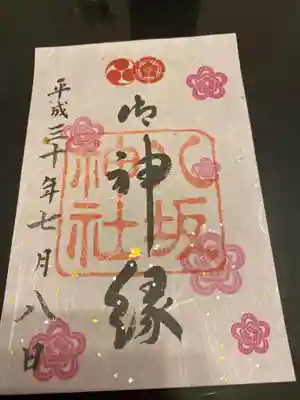 御神縁
八坂
神社
平成三十年七月八日